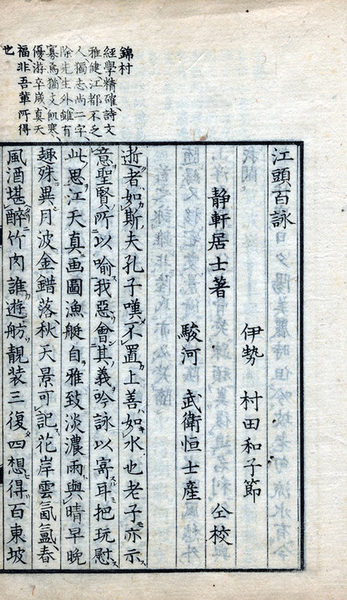 江頭百詠
静軒居士著
伊勢 村田和子節
駿河 武衛恒士産 仝校
逝者如斯夫孔子嘆不置上善如水也老子亦示
意聖賢所以喻我惡會其義吟詠以寓耳把玩慰
此思江天真画圖漁艇自雅致淡濃雨與晴早晚
趣殊異月波金錯落秋天景可記花岸雲氤氳春
風酒堪醉竹肉誰遊舫靚装三復四想得百東坡
錦村
經學精確詩文
雅健江都不乏
人獨志尚二字
除先生外雖有
寡焉猶文飢寒
優游卒歳真天
福非吾輩所得
也